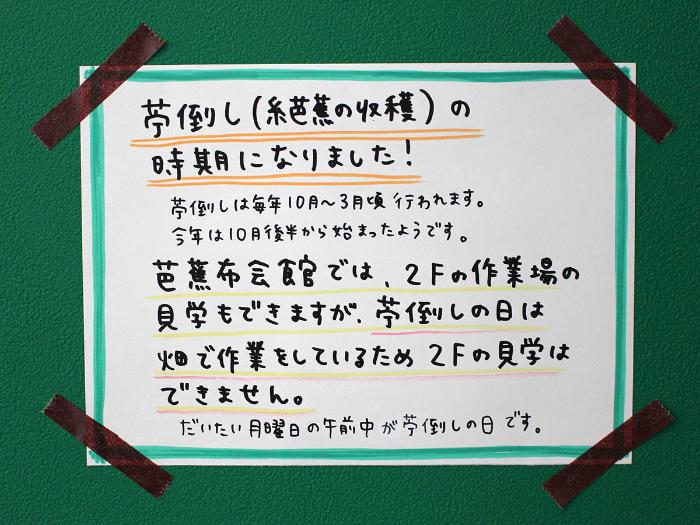 苧倒し(糸芭蕉の収穫)の
時期になりました!
苧倒しは毎年10月〜3月頃 行われます。
今年は10月後半から始まったようです。
芭蕉布会館では、2Fの作業場の
見学もできますが、苧倒しの日は
畑で作業をしているため 2Fの見学は
できません。
だいたい月曜日の午前中が苧倒しの日です。